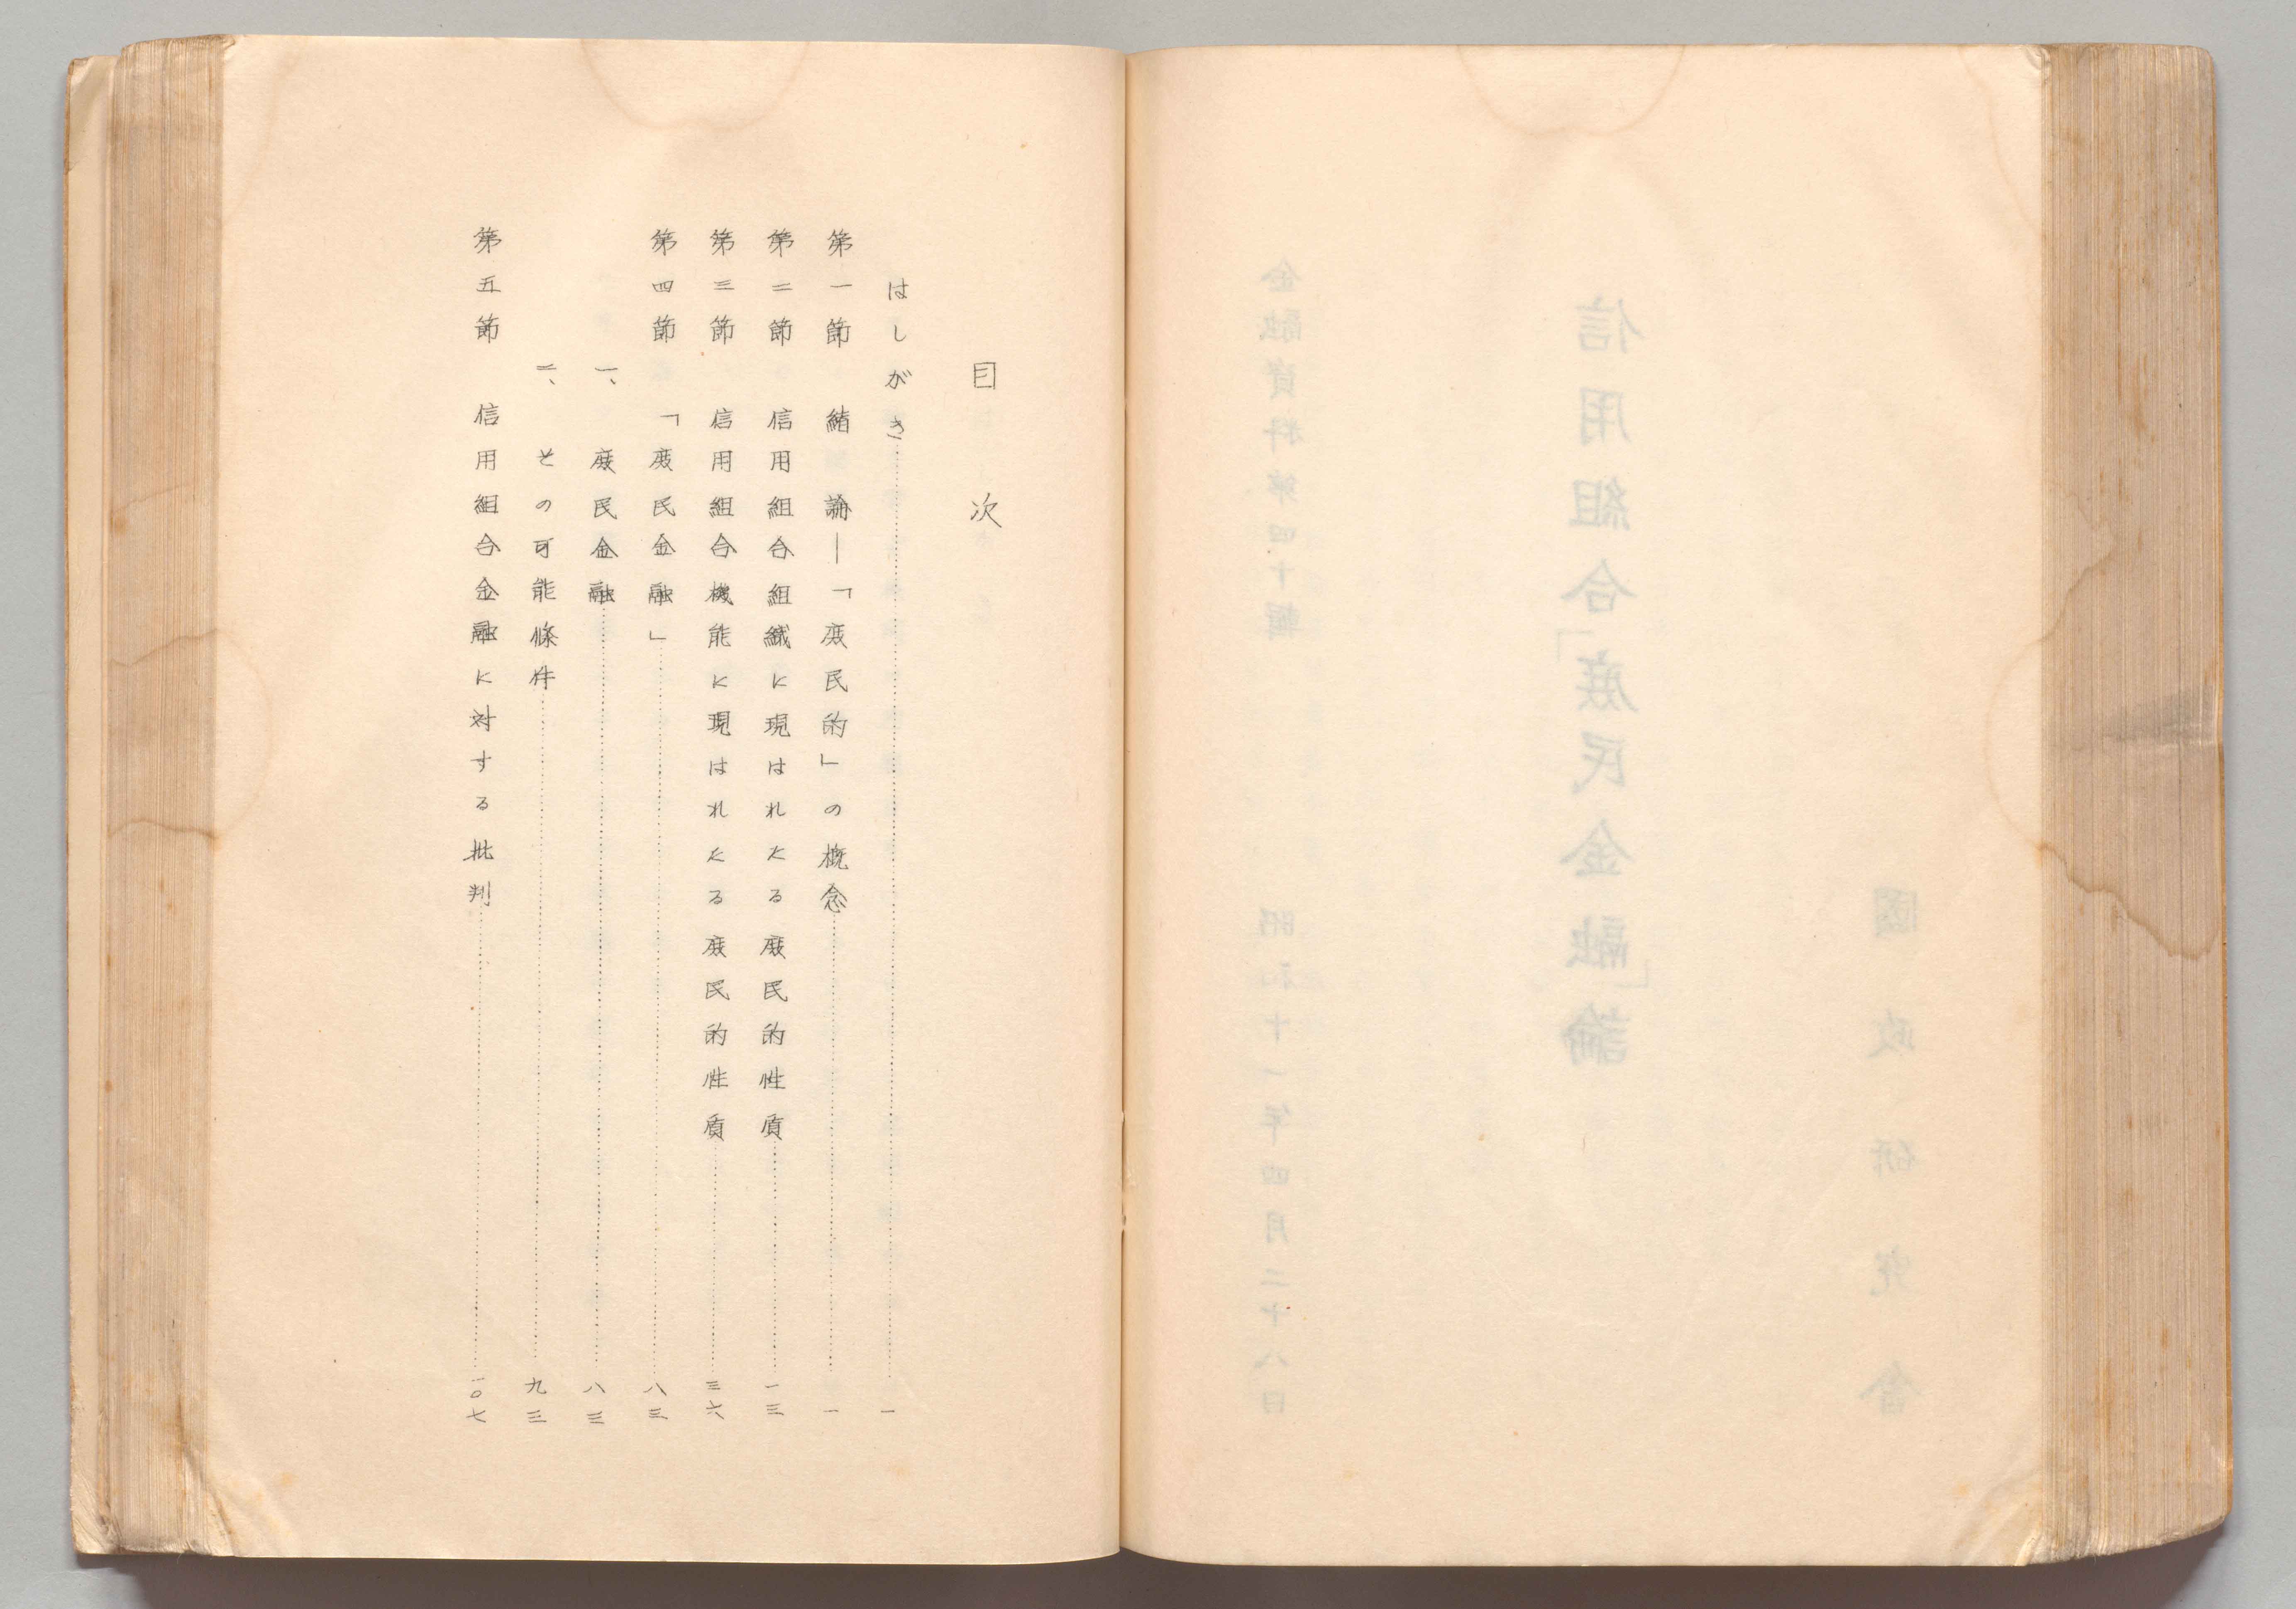 金融資料第四十輯　昭和十一年四月二十八日
信用組合「庶民金融」論
國政研究會
目次
はしがき……一
第一節　緒論―「庶民的」の概念……一
第二節　信用組合組織に現はれたる庶民的性質……一三
第三節　信用組合機能に現はれたる庶民的性質……三六
第四節　「庶民金融」……八三
一、庶民金融……八三
二、その可能條件……九三
第五節　信用組合金融に対する批判……一〇七